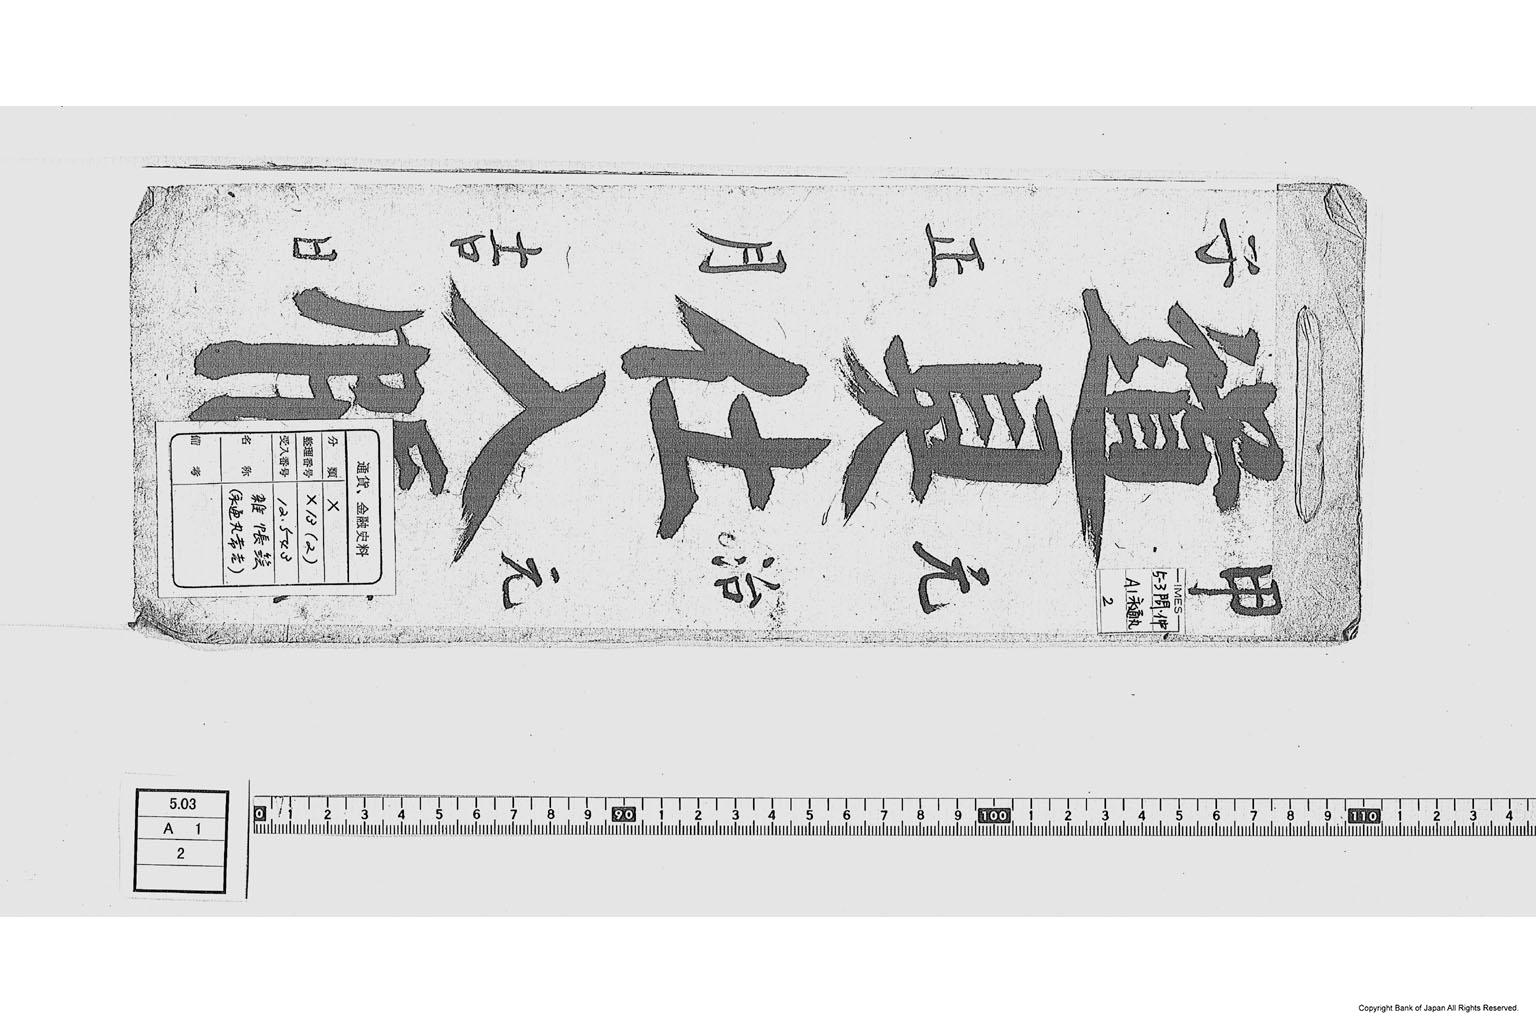 甲 元治元
具仕入帳
子 正月吉日
IMES
5-3 開・仲
A1 永通丸
2
通貨、金融史料
分類 X
整理番号 X13(2)
受入番号 12.543
名称 雑帳
備考
5.03
A 1
2
0 1 2 3 4 5 6 7 8 9 90 1 2 3 4 5 6 7 8 9 100 1 2 3 4 5 6 7 8 9 110 1 2 3 4
Copyright Bank of Japan All Rights Reserved.